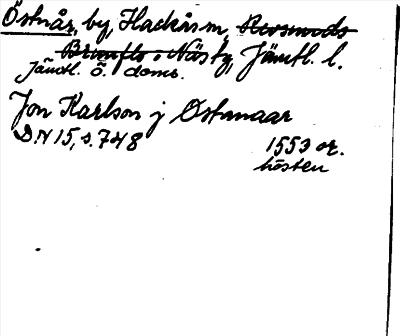 Östnår, by, Hackås sn, Revsunds
Brunflo o. Näs tg, Jämtl. l.
Jämtl. ö. doms.
Jon Karlson j Ostanaar
DN 15, s. 748 1553 or.
hösten